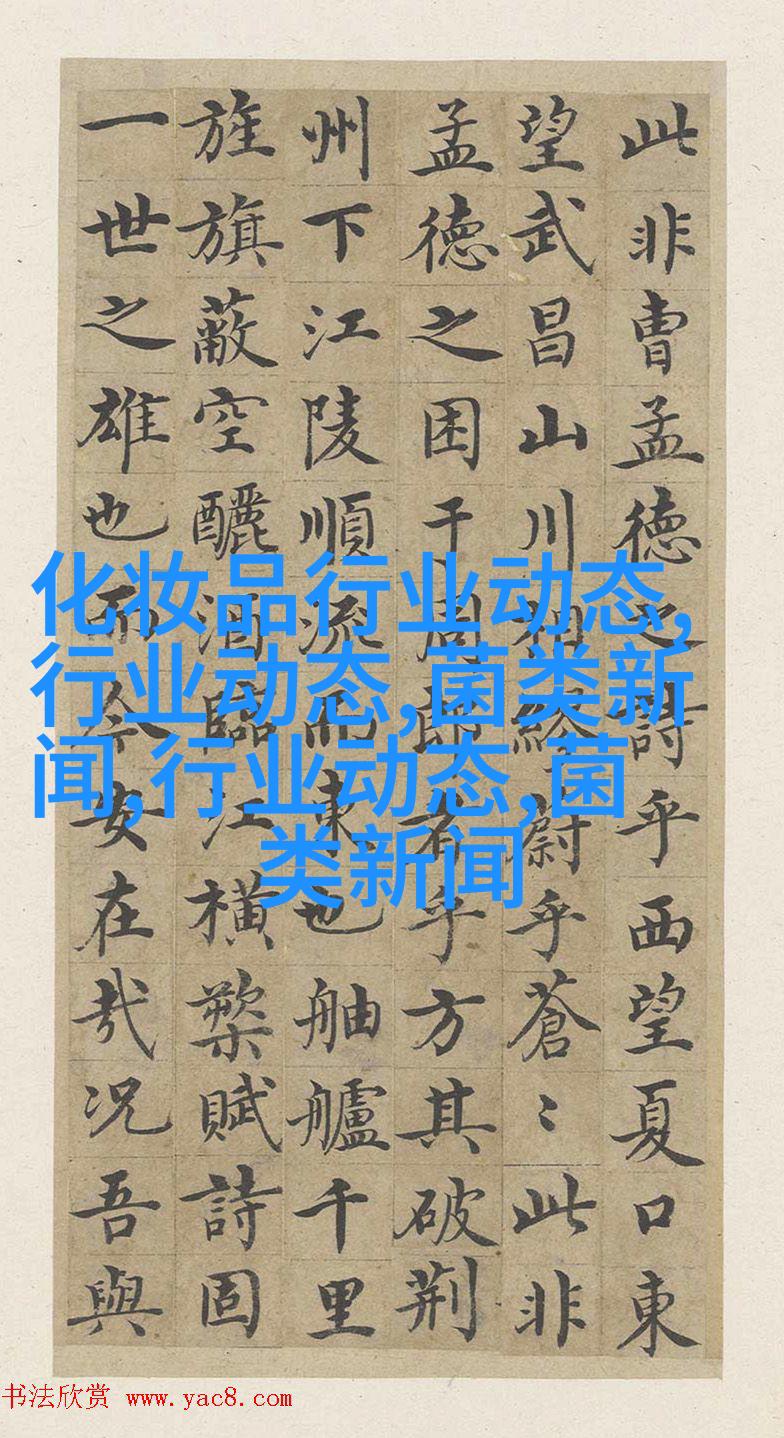 此非曹孟德之詩乎西望夏口東
望武昌山川相繆蔚乎蒼〻此非
孟德之困于周郎者乎方其破荆
州下江陵順流而東也舳艫千里
旌旗蔽空釃酒臨江横槊賦詩固
一世之雄也而今安在哉况吾與
化妆品行业动态,
行业动态,菌类新
闻,行业动态,菌
类新闻
书法欣赏 www.yac8.com